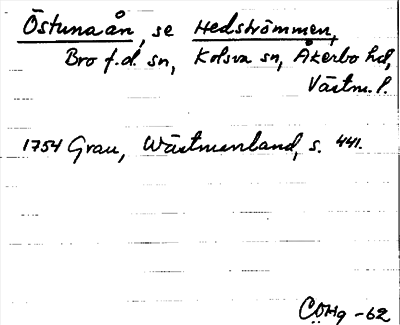 Östunaån, se Hedströmmen,
Bro f.d. sn, Kolsva sn, Åkerbo hd,
Västm.l.
1754 Grau, Wästmanland, s. 441.
COHg -62